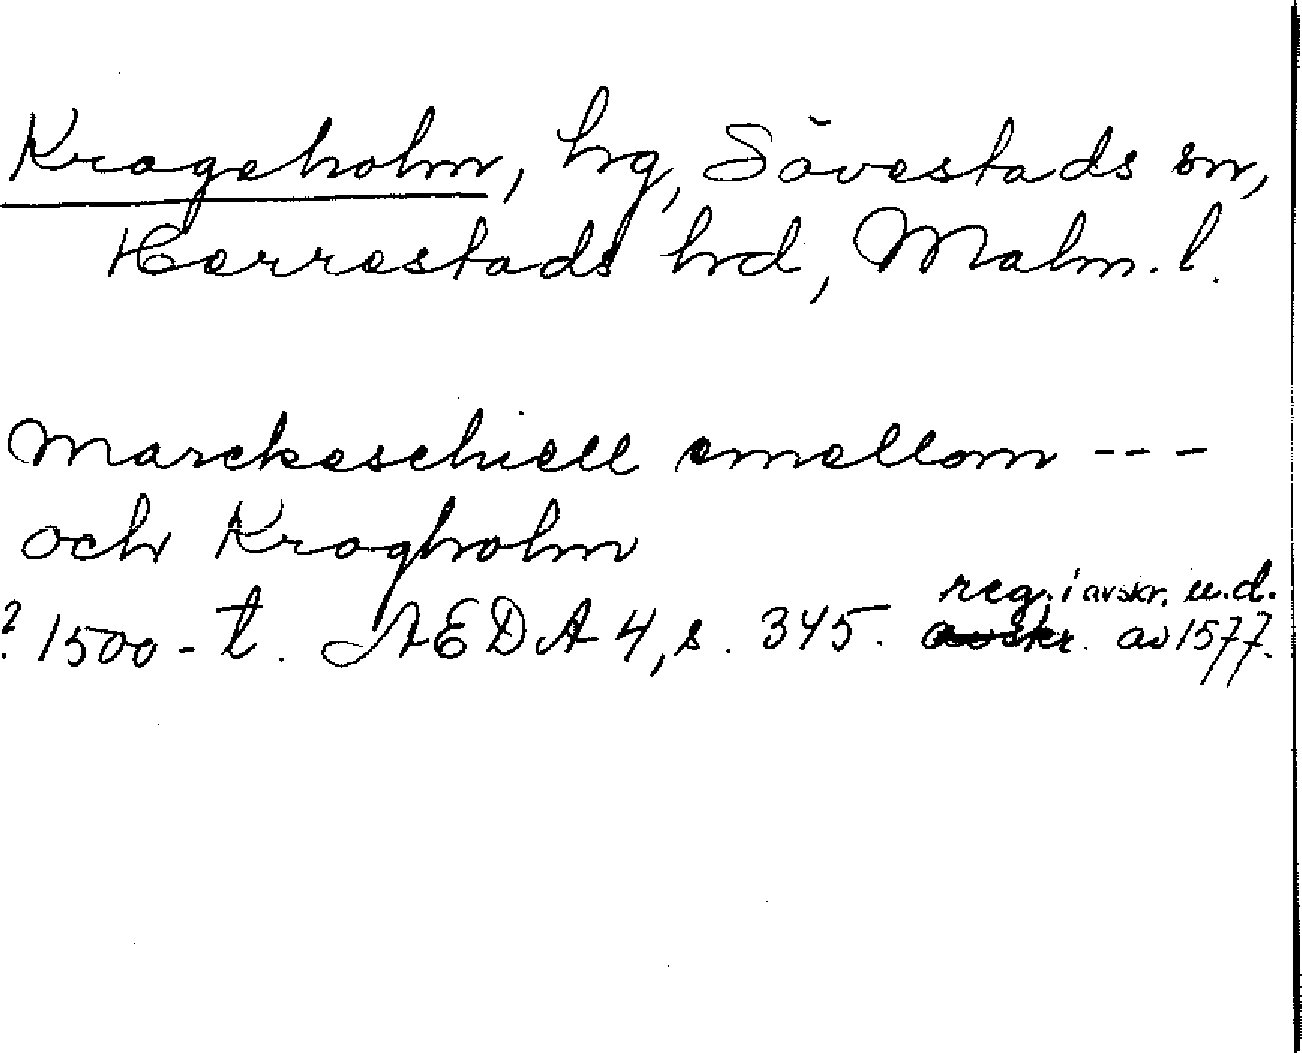 Krageholm, hg, Sövestads sn,
Herrestads hd, Malm. l.
Marckeschiell emellom ---
och Kragholm
reg. i avskr. u.d.
? 1500-t. ÆDA 4, s. 345. av 1577.